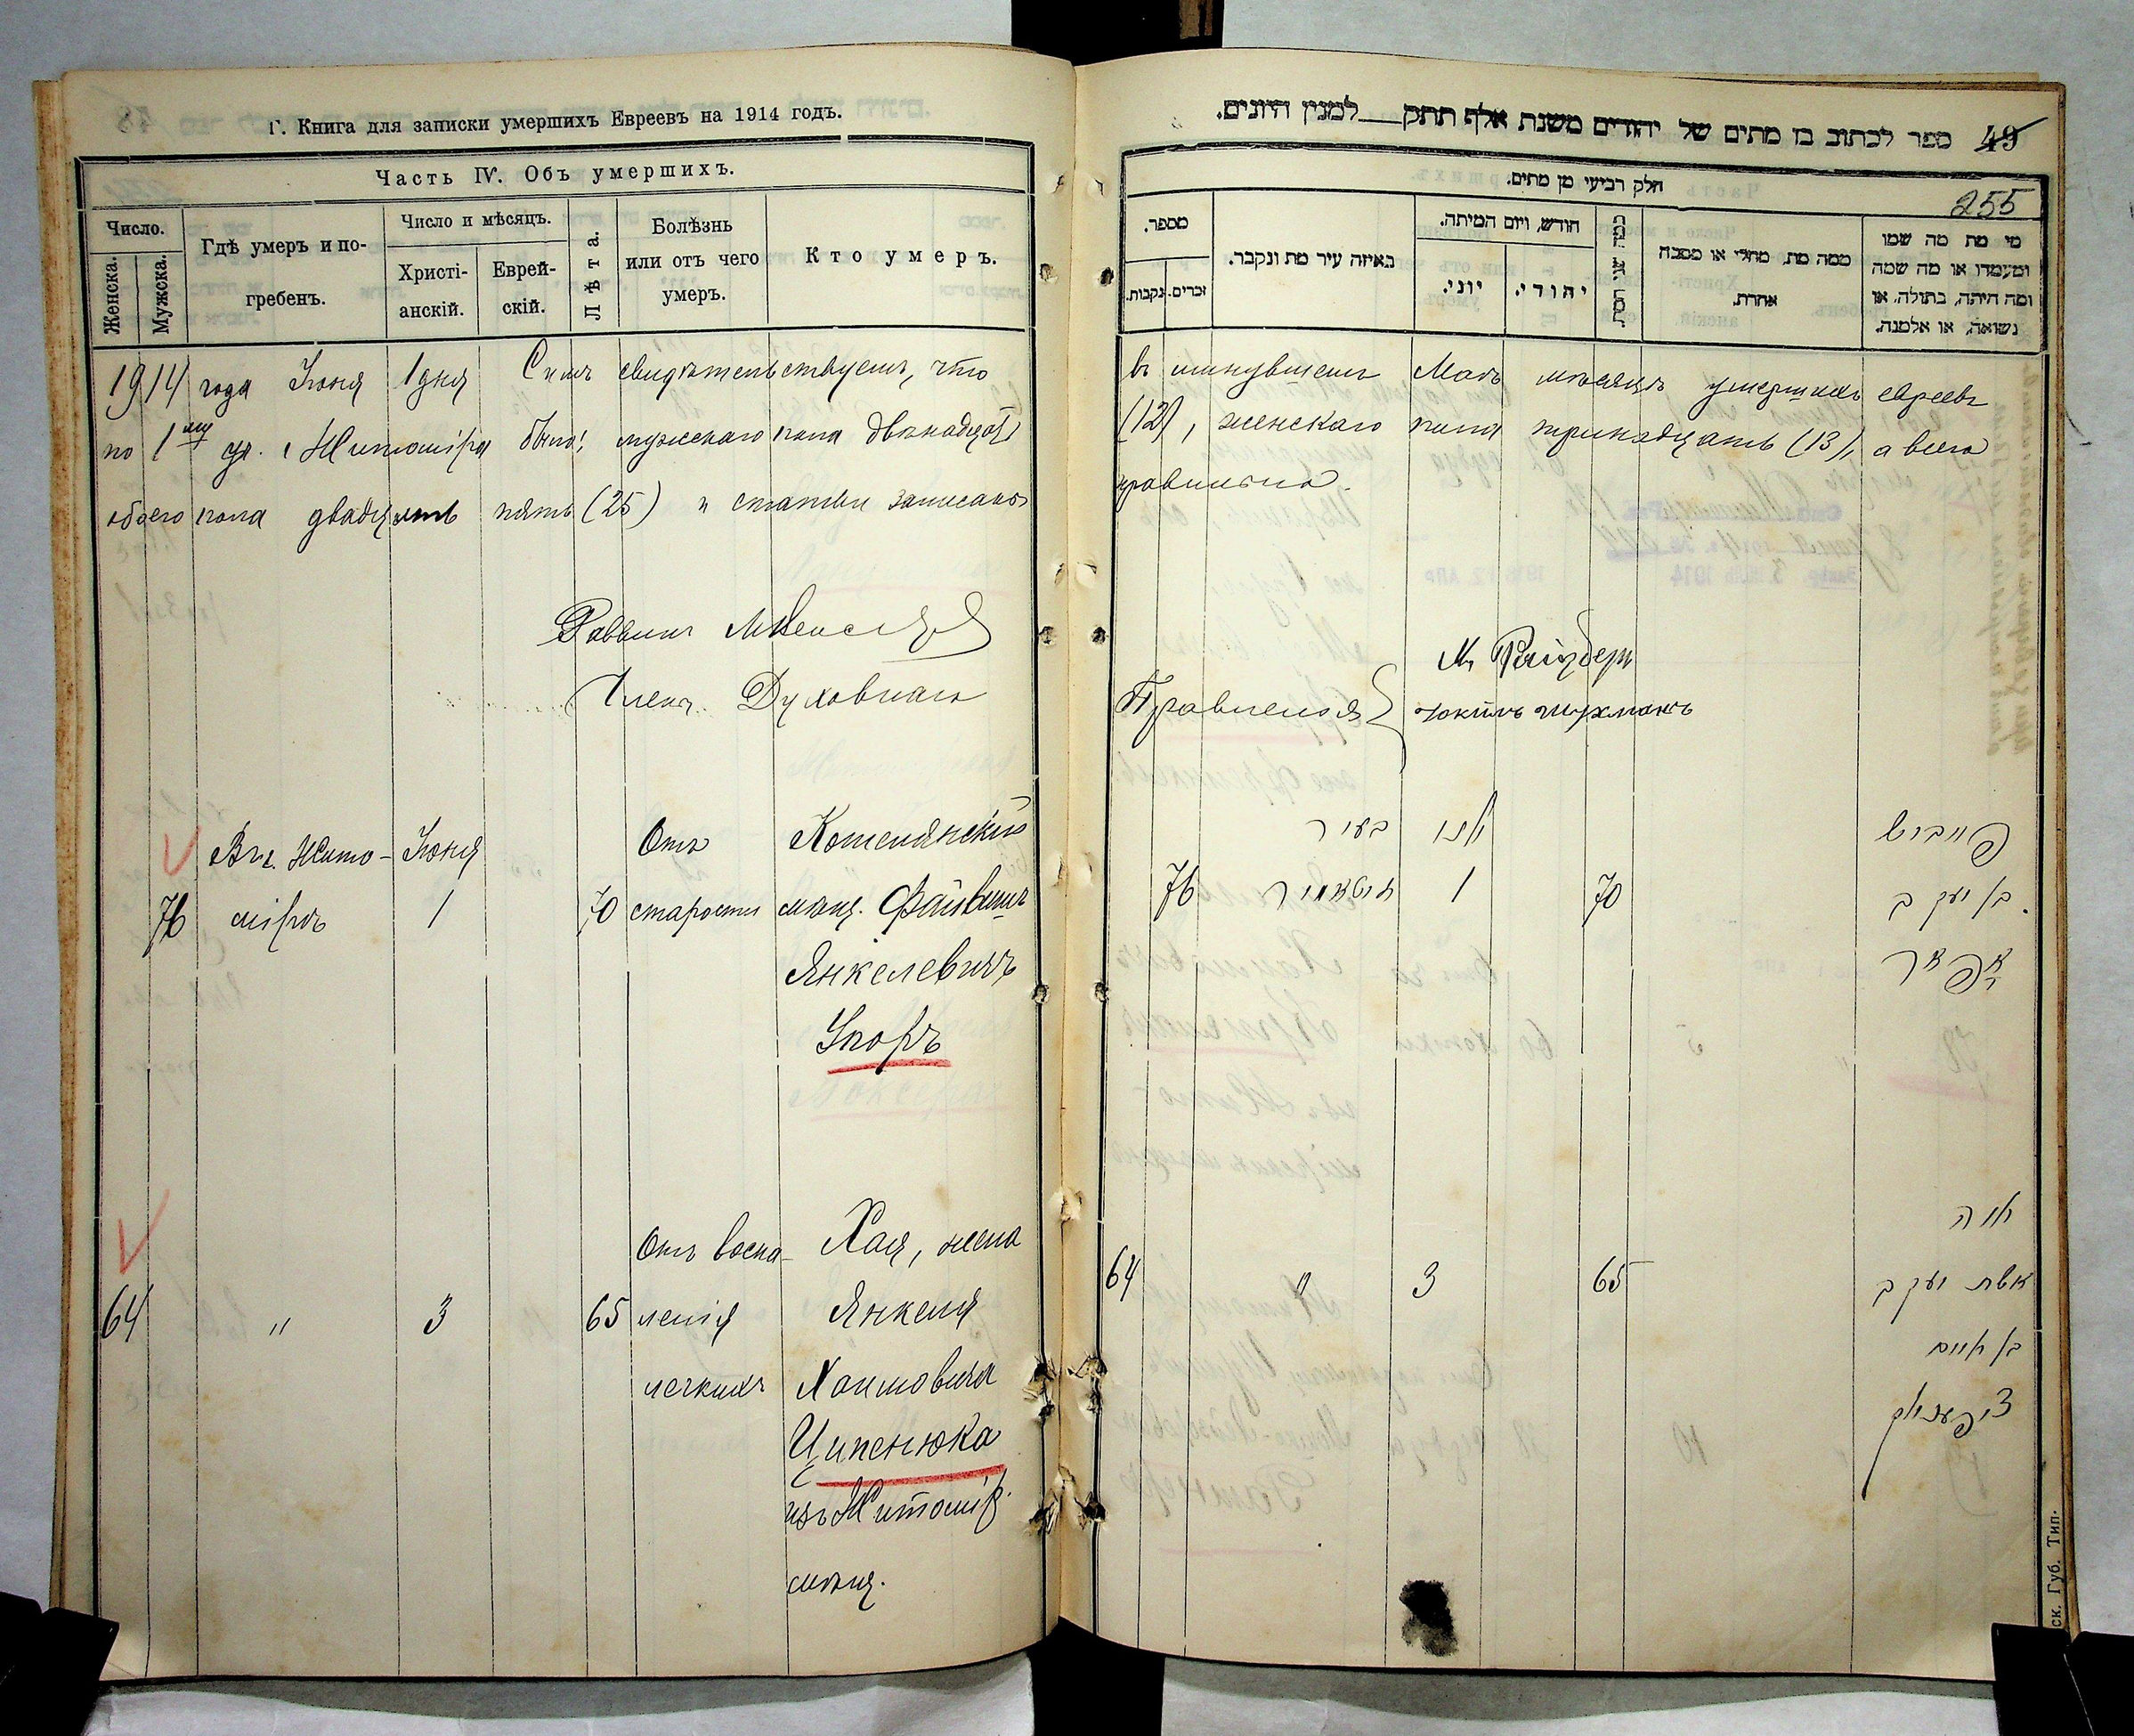 Г. Книга для записки умершихъ Евреевъ на 1914 годъ.
Часть IV. Объ умершихъ.
Число.
Женска.
Мужска.
Гдѣ умеръ и по-
гребенъ.
Число и мѣсяцъ.
Христі-
анскій.
Еврей-
скій.
Лѣта.
Болѣзнь
или отъ чего
умеръ.
Кто умеръ.
49 ספר לכתוב בו מתים של יהודים משנת אלף תתק למנין היונים.
חלק רביעי מן מתים.
255
מספר.
זכרים.
נקבות.
באיזה עיר מת ונקבר.
חודש, ויום המיתה.
יוני.
יהודי.
ממה מת, מחלי או מסבה
אחרת.
מי מת מה שמו
ומעמדו או מה שמה
ומה היתה, בתולה, או
נשואה, או אלמנה.
1914 года Іюня 1 дня Симъ свидѣтельствуемъ, что въ минувшемъ Маѣ мѣсяцѣ умершихъ евреевъ
по 1му уч. г. Житоміра было: мужскаго пола двѣнадцать (12), женскаго пола тринадцать (13), а всего
обоего пола двадцать пять (25) и статьи записаны правильно.
Раввинъ
Члены Духовнаго Правленія
76
Въ г. Жито-
мірѣ
Іюня
1
70
Отъ
старости
Котелянскій
мѣщ. Файвишъ
Янкелевичъ
Упоръ
76
בעיר
זיטאמיר
יוני
1
70
פייביש
בן יעקב
אפאר
64
"
3
65
Отъ воспа-
ленія
легкихъ
Хая, жена
Янкеля
Хаимовича
Ципенюка
изъ Житомір.
мѣщ.
64
"
3
65
חיה
אשת יעקב
בן חיים
ציפעניוק
ск. Губ. Тип.